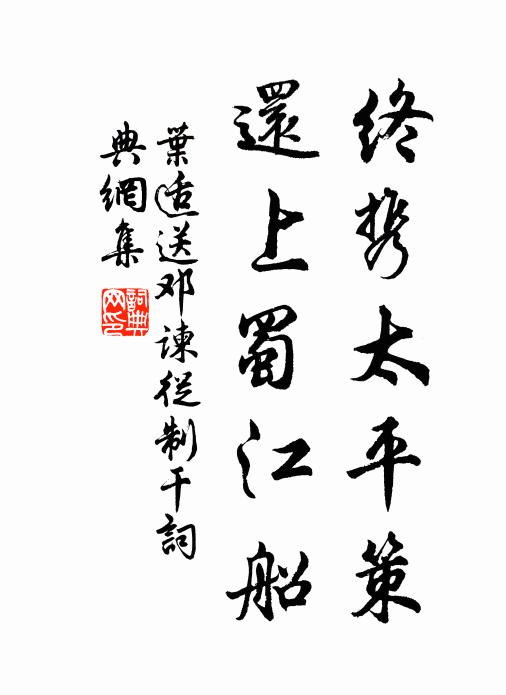 终携太平策
還上蜀江船
葉适送邓諫從制干詞
典網集
詞典網印